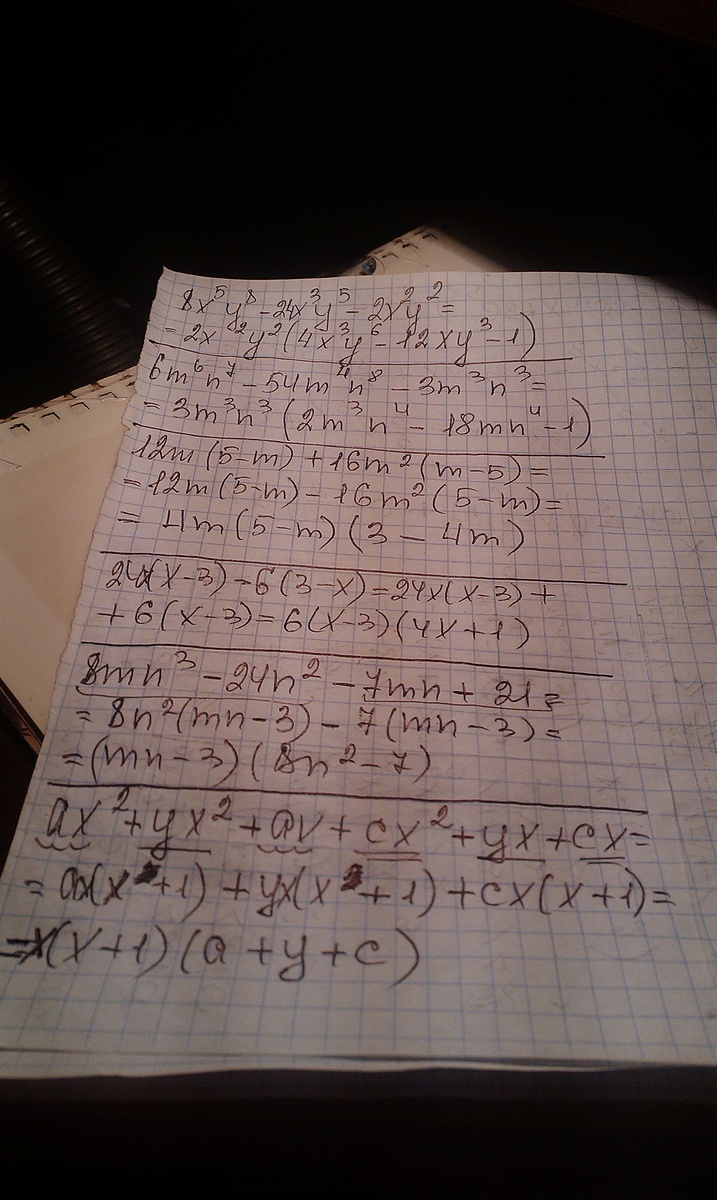 8x⁵y⁸ - 24x³y⁵ - 2x²y² =
= 2x²y²(4x³y⁶ - 12xy³ - 1)
6m⁶n⁷ - 54m⁴n⁸ - 3m³n³ =
= 3m³n³(2m³n⁴ - 18mn⁴ - 1)
12m(5-m) + 16m²(m-5) =
= 12m(5-m) - 16m²(5-m) =
= 4m(5-m)(3 - 4m)
24x(x-3) - 6(3-x) = 24x(x-3) +
+ 6(x-3) = 6(x-3)(4x+1)
8mn³ - 24n² - 7mn + 21 =
= 8n²(mn-3) - 7(mn-3) =
= (mn-3)(8n²-7)
ax² + yx² + ax + cx² + yx + cx =
= ax(x+1) + yx(x+1) + cx(x+1) =
= x(x+1)(a+y+c)